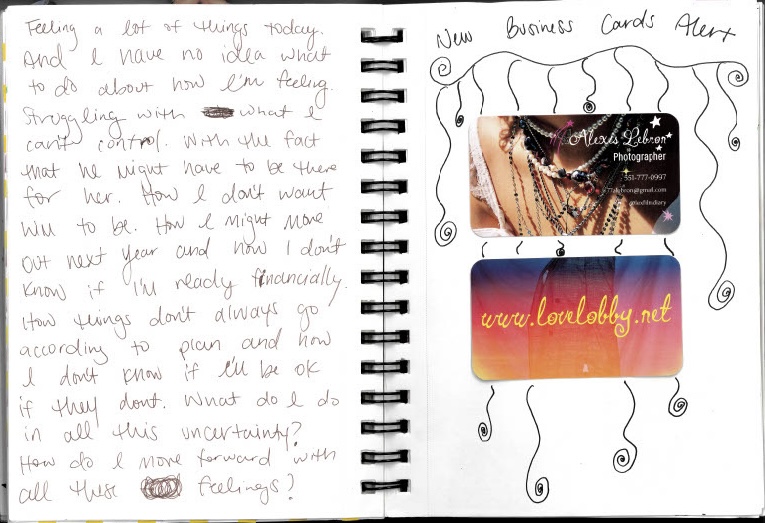 Feeling a lot of things today.
And I have no idea what
to do about how I'm feeling.
Struggling with what I
can't control. With the fact
that he might have to be there
for her. How I don't want
him to be. How I might move
out next year and how I don't
know if I'm ready financially.
How things don't always go
according to plan and how
I don't know if I'll be ok
if they dont. What do I do
in all this uncertainty?
How do I move forward with
all these feelings?
New Business Cards Alert
Alexis Lebron
Photographer
551-777-0997
@lexfilmdiary
www.lovelobby.net